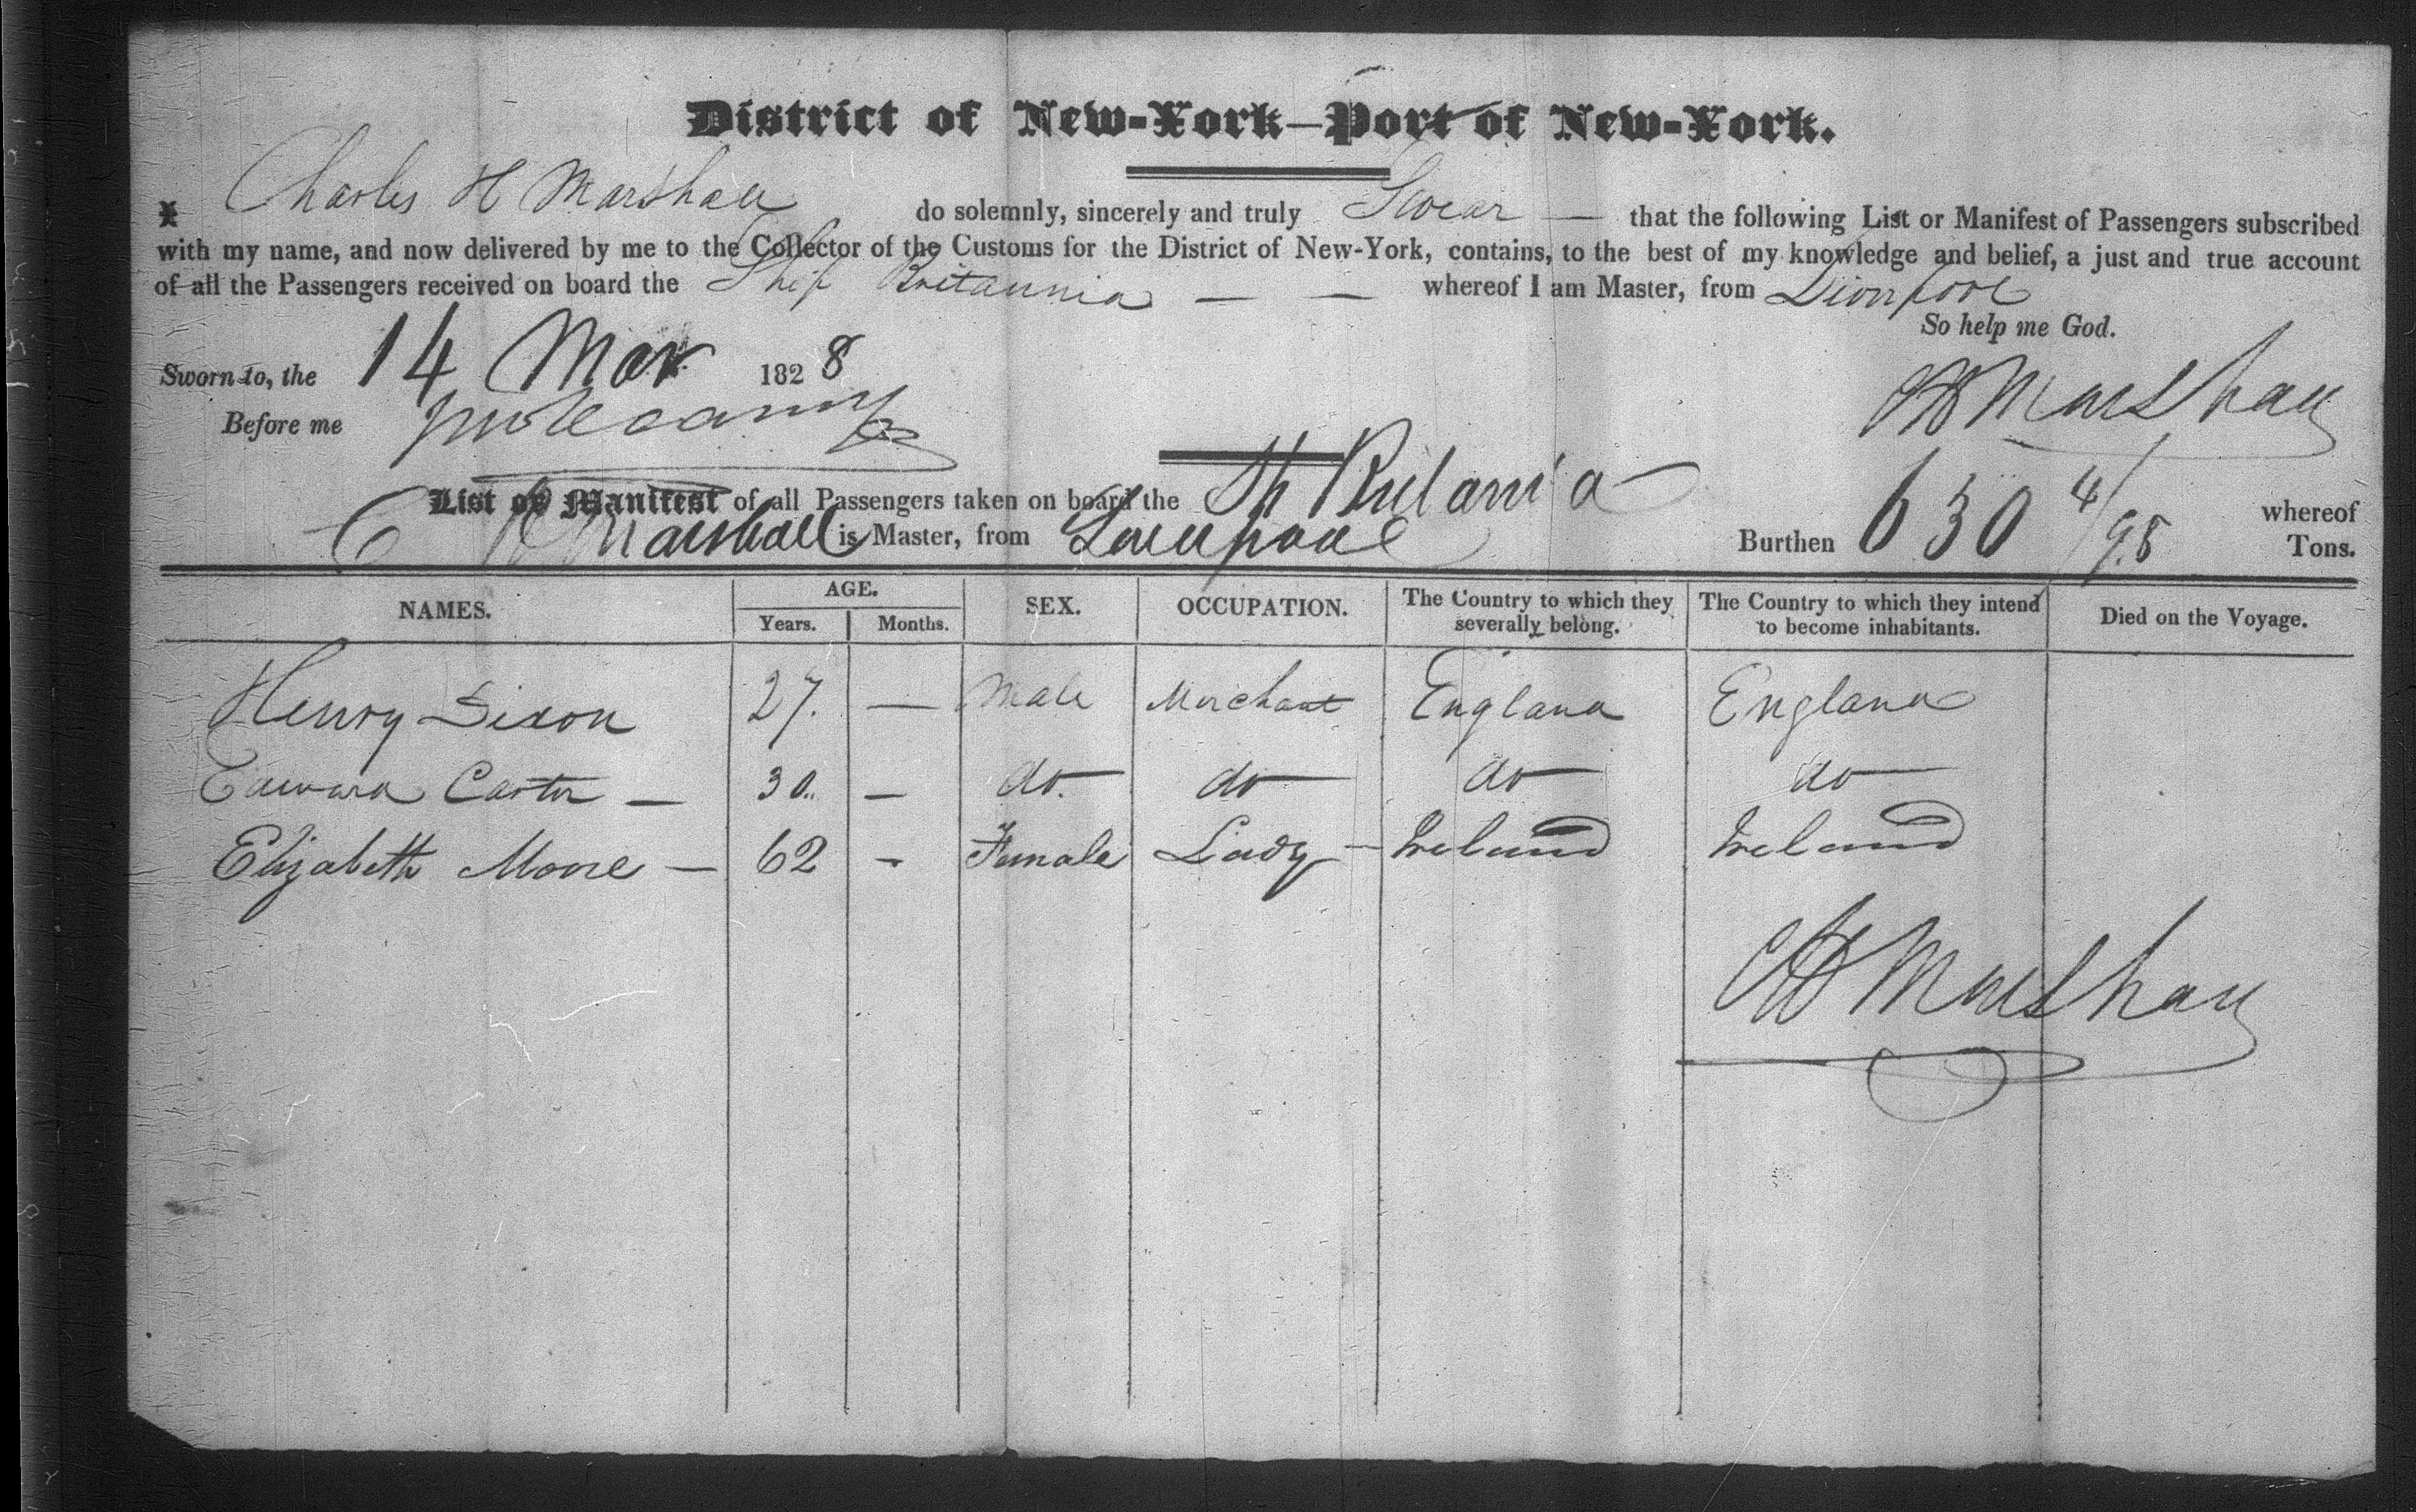 District of New-York—Port of New-York.
I Charles H Marshall do solemnly, sincerely and truly Swear — that the following List or Manifest of Passengers subscribed
with my name, and now delivered by me to the Collector of the Customs for the District of New-York, contains, to the best of my knowledge and belief, a just and true account
of all the Passengers received on board the Ship Britannia — — whereof I am Master, from Liverpool
So help me God.
Sworn to, the 14 Mar 1828
CH Marshall
Before me
List or Manifest of all Passengers taken on board the Sh Britania Burthen 630 4/95 Tons. whereof
C H Marshall is Master, from Liverpool
NAMES. AGE. Years. Months. SEX. OCCUPATION. The Country to which they severally belong. The Country to which they intend to become inhabitants. Died on the Voyage.
Henry Dixon 27. — Male Merchant England England
Edward Carter — 30.. — do. do do do
Elizabeth Moore — 62 - Female Lady — Ireland Ireland
CH Marshall